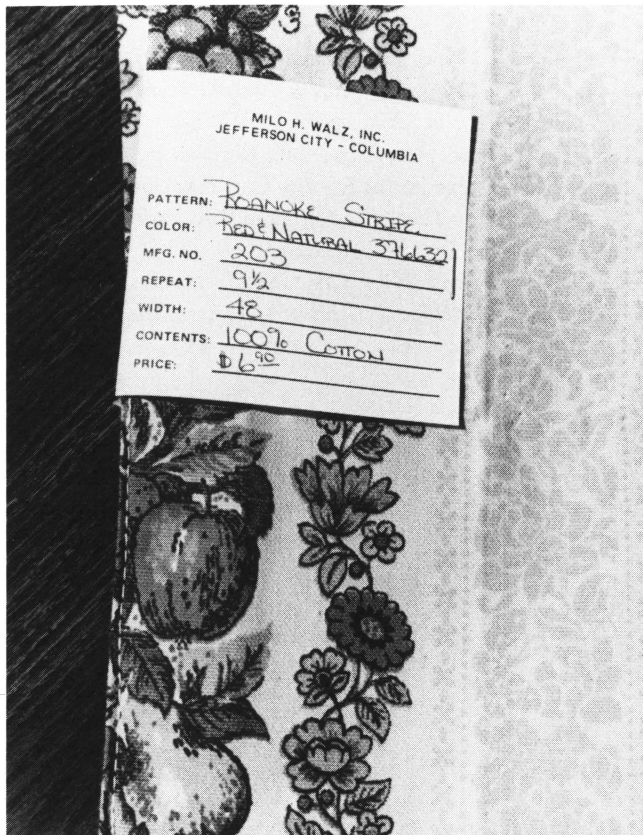 MILO H. WALZ, INC.
JEFFERSON CITY - COLUMBIA
PATTERN: ROANOKE STRIPE
COLOR: RED & NATURAL 376632
MFG. NO. 203
REPEAT: 9 1/2
WIDTH: 48
CONTENTS: 100% COTTON
PRICE: $6.90